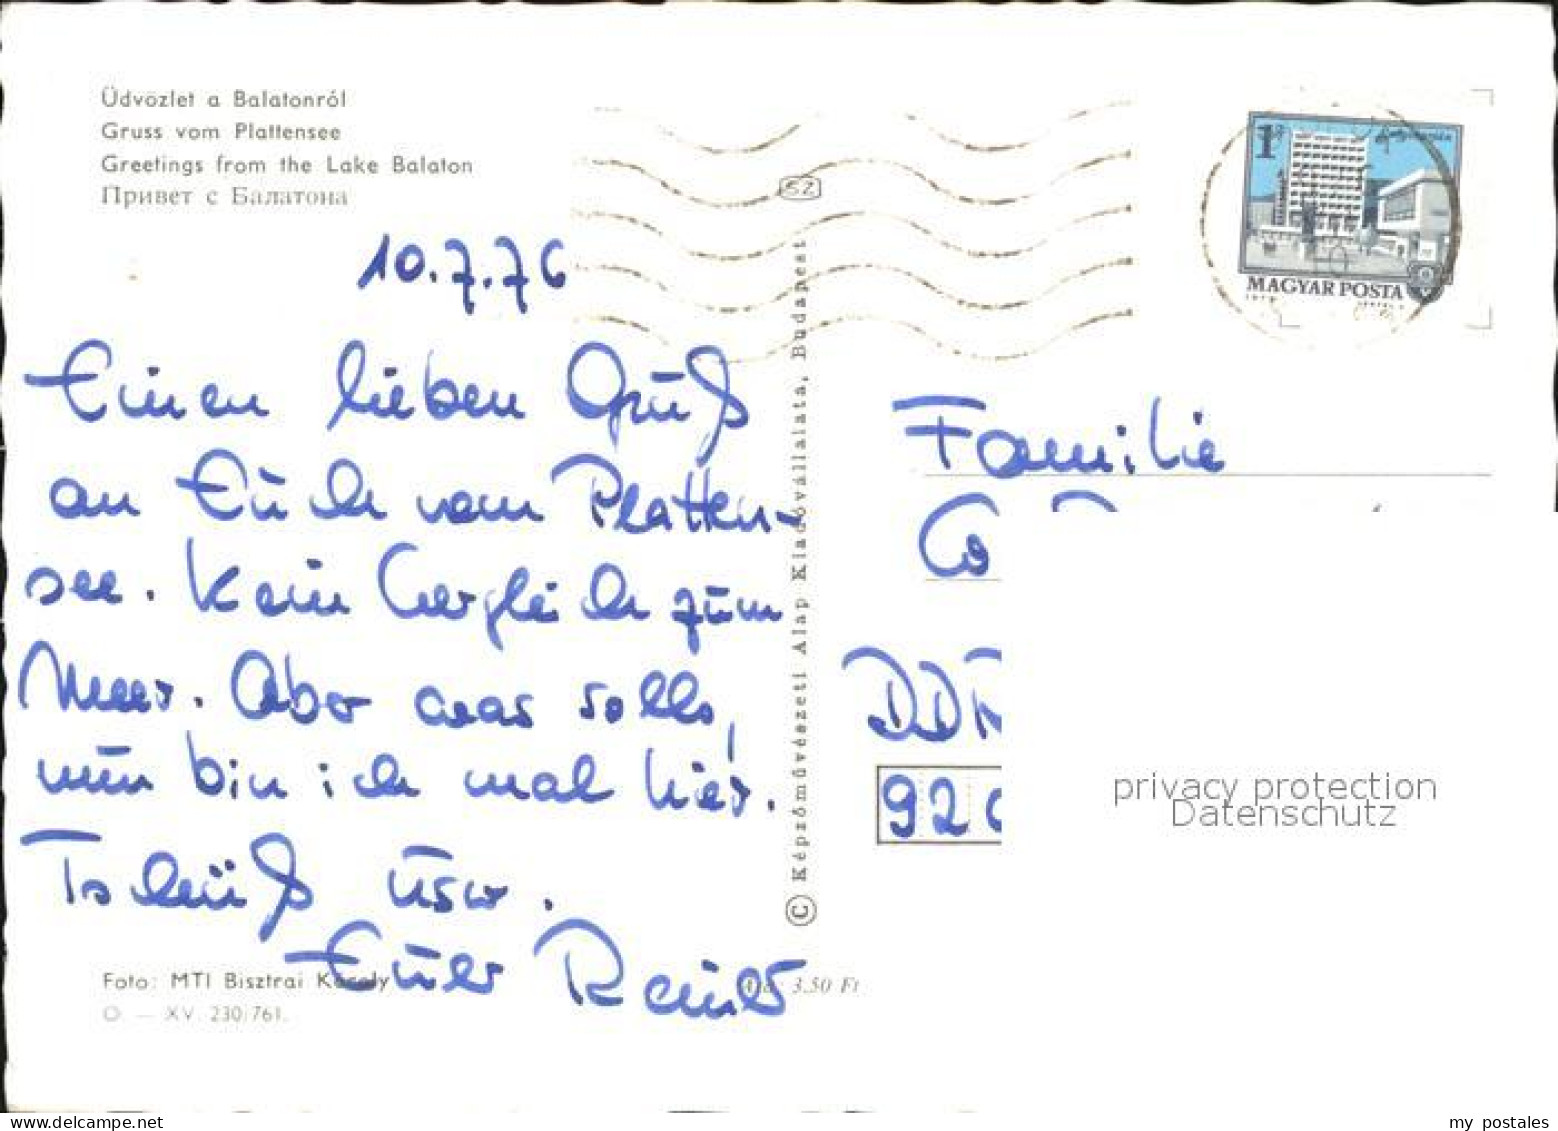 Üdvözlet a Balatonról
Gruss vom Plattensee
Greetings from the Lake Balaton
Привет с Балатона
52
1
MAGYAR POSTA
10.7.76
Einen lieben Gruß
an Euch vom Platten-
see. Kein Vergleich zum
Meer. Aber was solls,
nun bin ich mal hier.
Tschüß usw.
Euer
Familie
DDR
92
© Képzőművészeti Alap Kiadóvállalata, Budapest
privacy protection
Datenschutz
Foto: MTI Bisztrai Károly
3.50 Ft
XV. 230/761.
my postales
www.delcampe.net